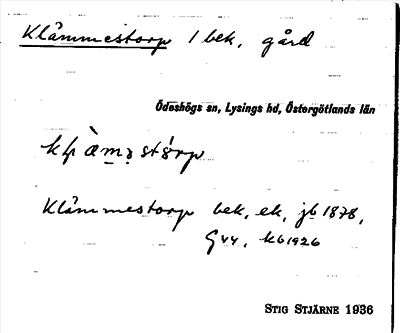 Klämmestorp 1 bek. gård
Ödeshögs sn, Lysings hd, Östergötlands län
Klämmestorp bek, ek, jb 1878,
Gvv, kb 1926
STIG STJÄRNE 1936